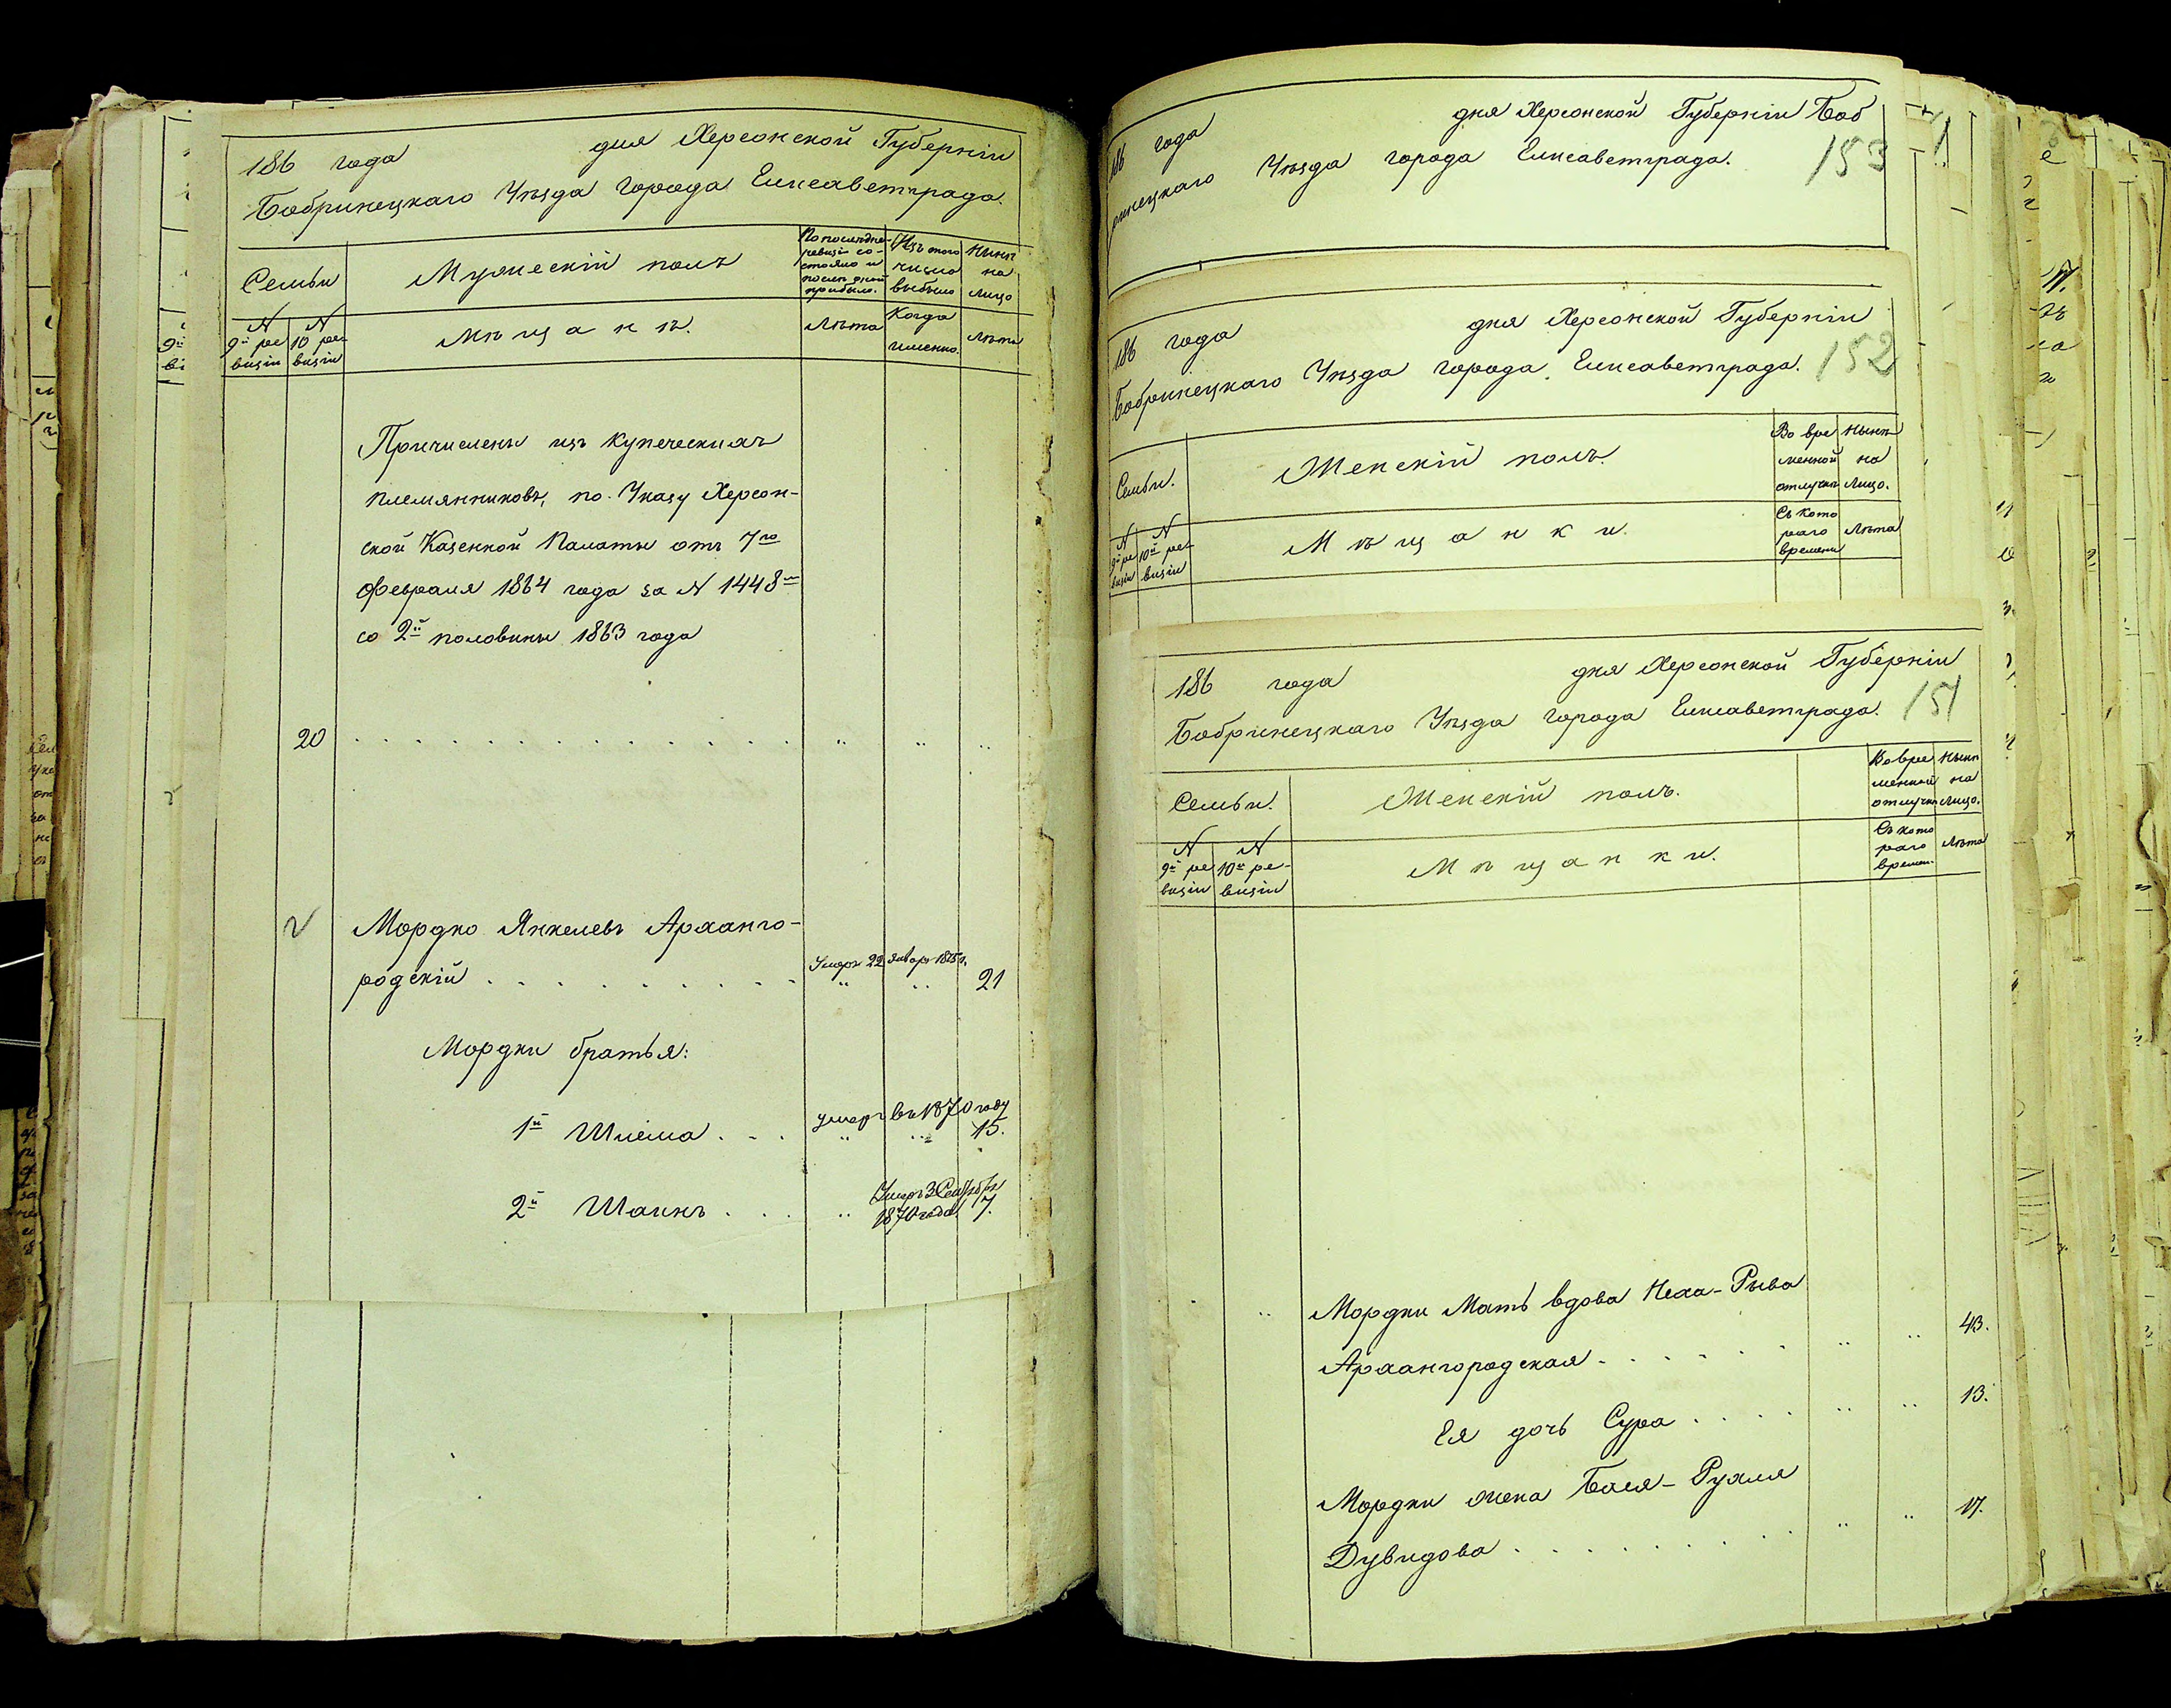 186 года дня Херсонской Губерніи
Бобринецкаго Уѣзда города Елисаветграда.
Семьи
Мужескій полъ
По последне-
ревизіи со-
стояло и
послѣ оной
прибыло.
Изъ того
числа
выбыло
Нынѣ
на
лицо
N
9й ре
визіи
N
10 ре-
визіи
Мѣщанъ.
Лѣта
Когда
именно.
Лѣта
Причислены изъ купеческихъ
племянниковъ, по Указу Херсон-
ской Казенной Палаты отъ 7го
Февраля 1864 года за N 1448м
со 2й половины 1863 года
20
Мордко Янкелевъ Арханго-
родскій
Умеръ 22 Январ
21
Мордки братья:
1й Шлема
умеръ въ 1870 году
15.
2й Шаинъ
Умеръ 3 Сентября
1870 года
7.
186 года дня Херсонской Губерніи Боб
ринецкаго Уѣзда города Елисаветграда.
153
186 года дня Херсонской Губерніи
Бобринецкаго Уѣзда города Елисаветграда.
152
Семьи.
Женскій полъ.
Во вре
менной
отлучкѣ
Нынѣ
на
лицо.
N
9й ре
визіи
N
10й ре-
визіи
Мѣщанки.
Съ кото
раго
времени
Лѣта
186 года дня Херсонской Губерніи
Бобринецкаго Уѣзда города Елисаветграда.
151
Семьи.
Женскій полъ.
Во вре
менной
отлучкѣ
Нынѣ
на
лицо.
N
9й ре
визіи
N
10й ре-
визіи
Мѣщанки.
Съ кото
раго
времен.
Лѣта
Мордки Мать вдова Неха-Рыва
Архангородская
43.
Ея дочь Сура
13.
Мордки жена Бася-Рухля
Дувидова
17.